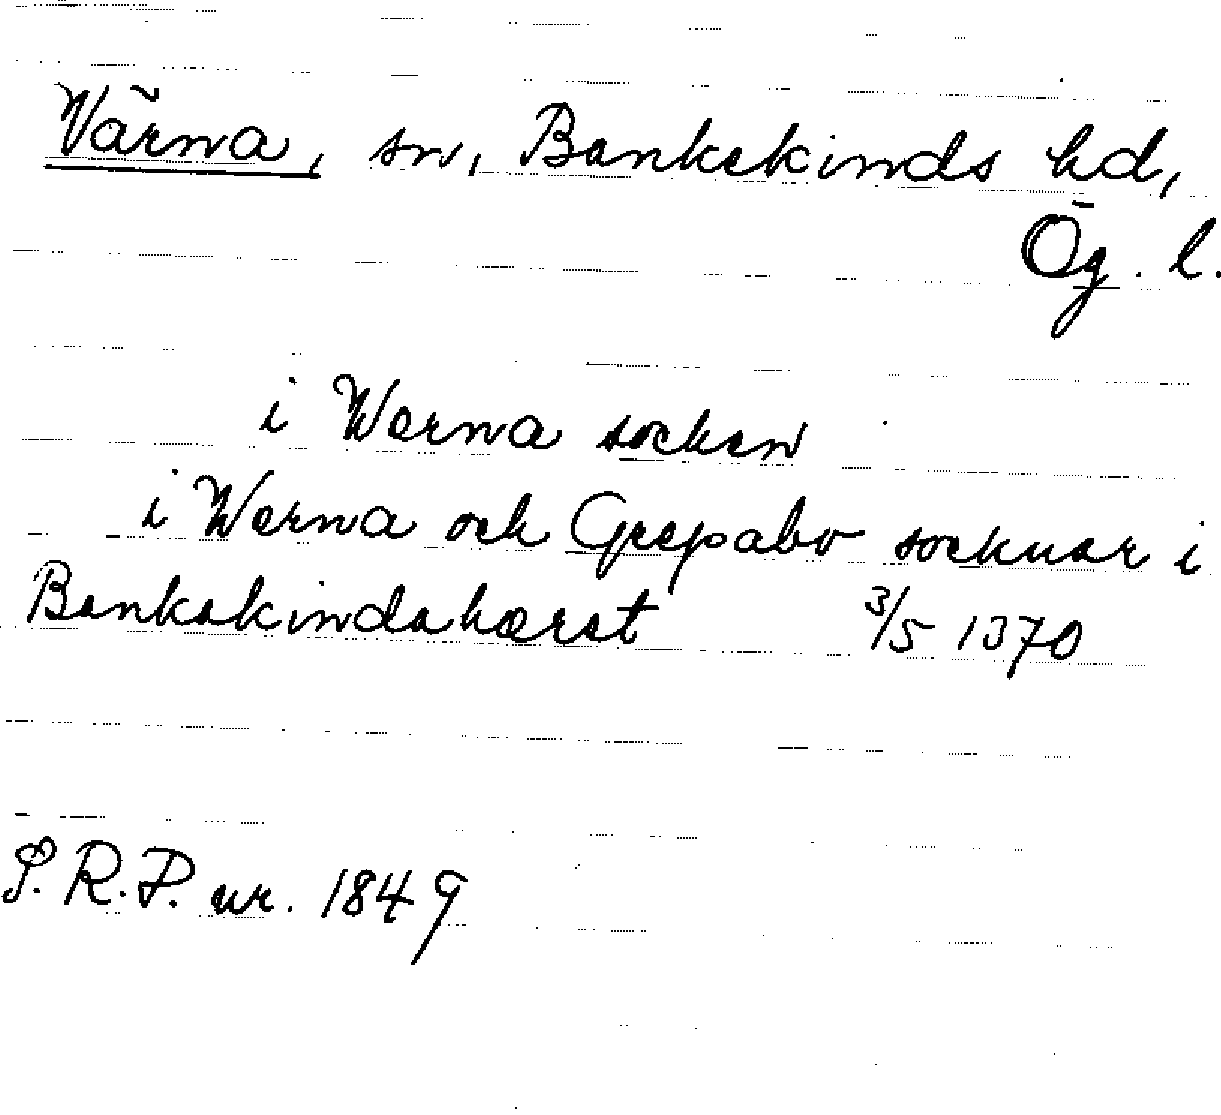 Värna, sn, Bankekinds hd,
Ög. l.
i Werna socken
i Werna och Grepabo socknar i
Bankakindahærat 3/5 1370
S.R.P. nr. 1849